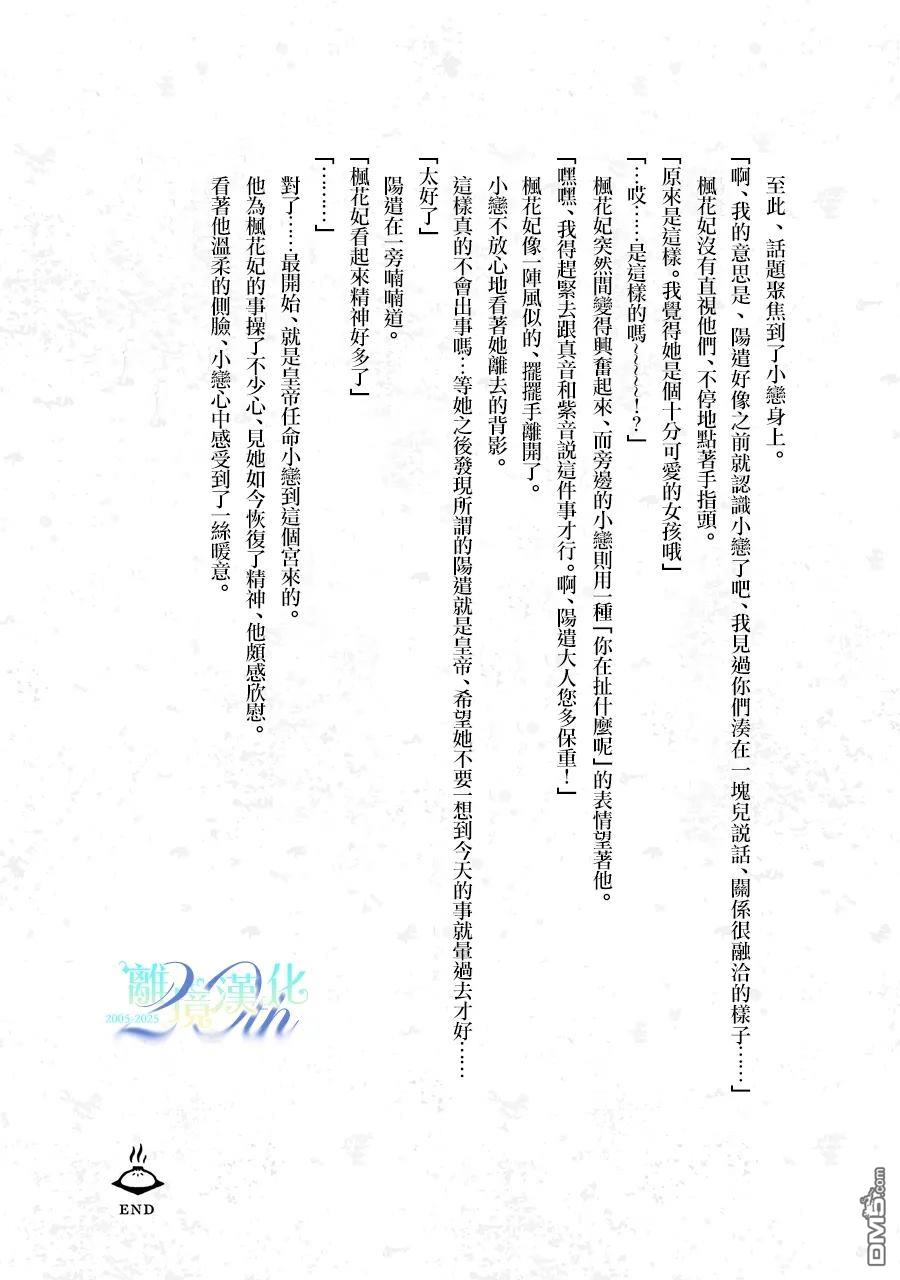 至此、話題聚焦到了小戀身上。
「啊、我的意思是、陽遣好像之前就認識小戀了吧、我見過你們湊在一塊兒説話、關係很融洽的樣子……」
楓花妃沒有直視他們、不停地點著手指頭。
「原來是這樣。我覺得她是個十分可愛的女孩哦」
「…哎……是這樣的嗎～～～～!?」
楓花妃突然間變得興奮起來、而旁邊的小戀則用一種「你在扯什麼呢」的表情望著他。
「嘿嘿、我得趕緊去跟真音和紫音説這件事才行。啊、陽遣大人您多保重！」
楓花妃像一陣風似的、擺擺手離開了。
小戀不放心地看著她離去的背影。
這樣真的不會出事嗎…等她之後發現所謂的陽遣就是皇帝、希望她不要一想到今天的事就暈過去才好……
「太好了」
陽遣在一旁喃喃道。
「楓花妃看起來精神好多了」
「………」
對了……最開始、就是皇帝任命小戀到這個宮來的。
他為楓花妃的事操了不少心、見她如今恢復了精神、他頗感欣慰。
看著他溫柔的側臉、小戀心中感受到了一絲暖意。
離境漢化
20th
2005-2025
END
DM5.com